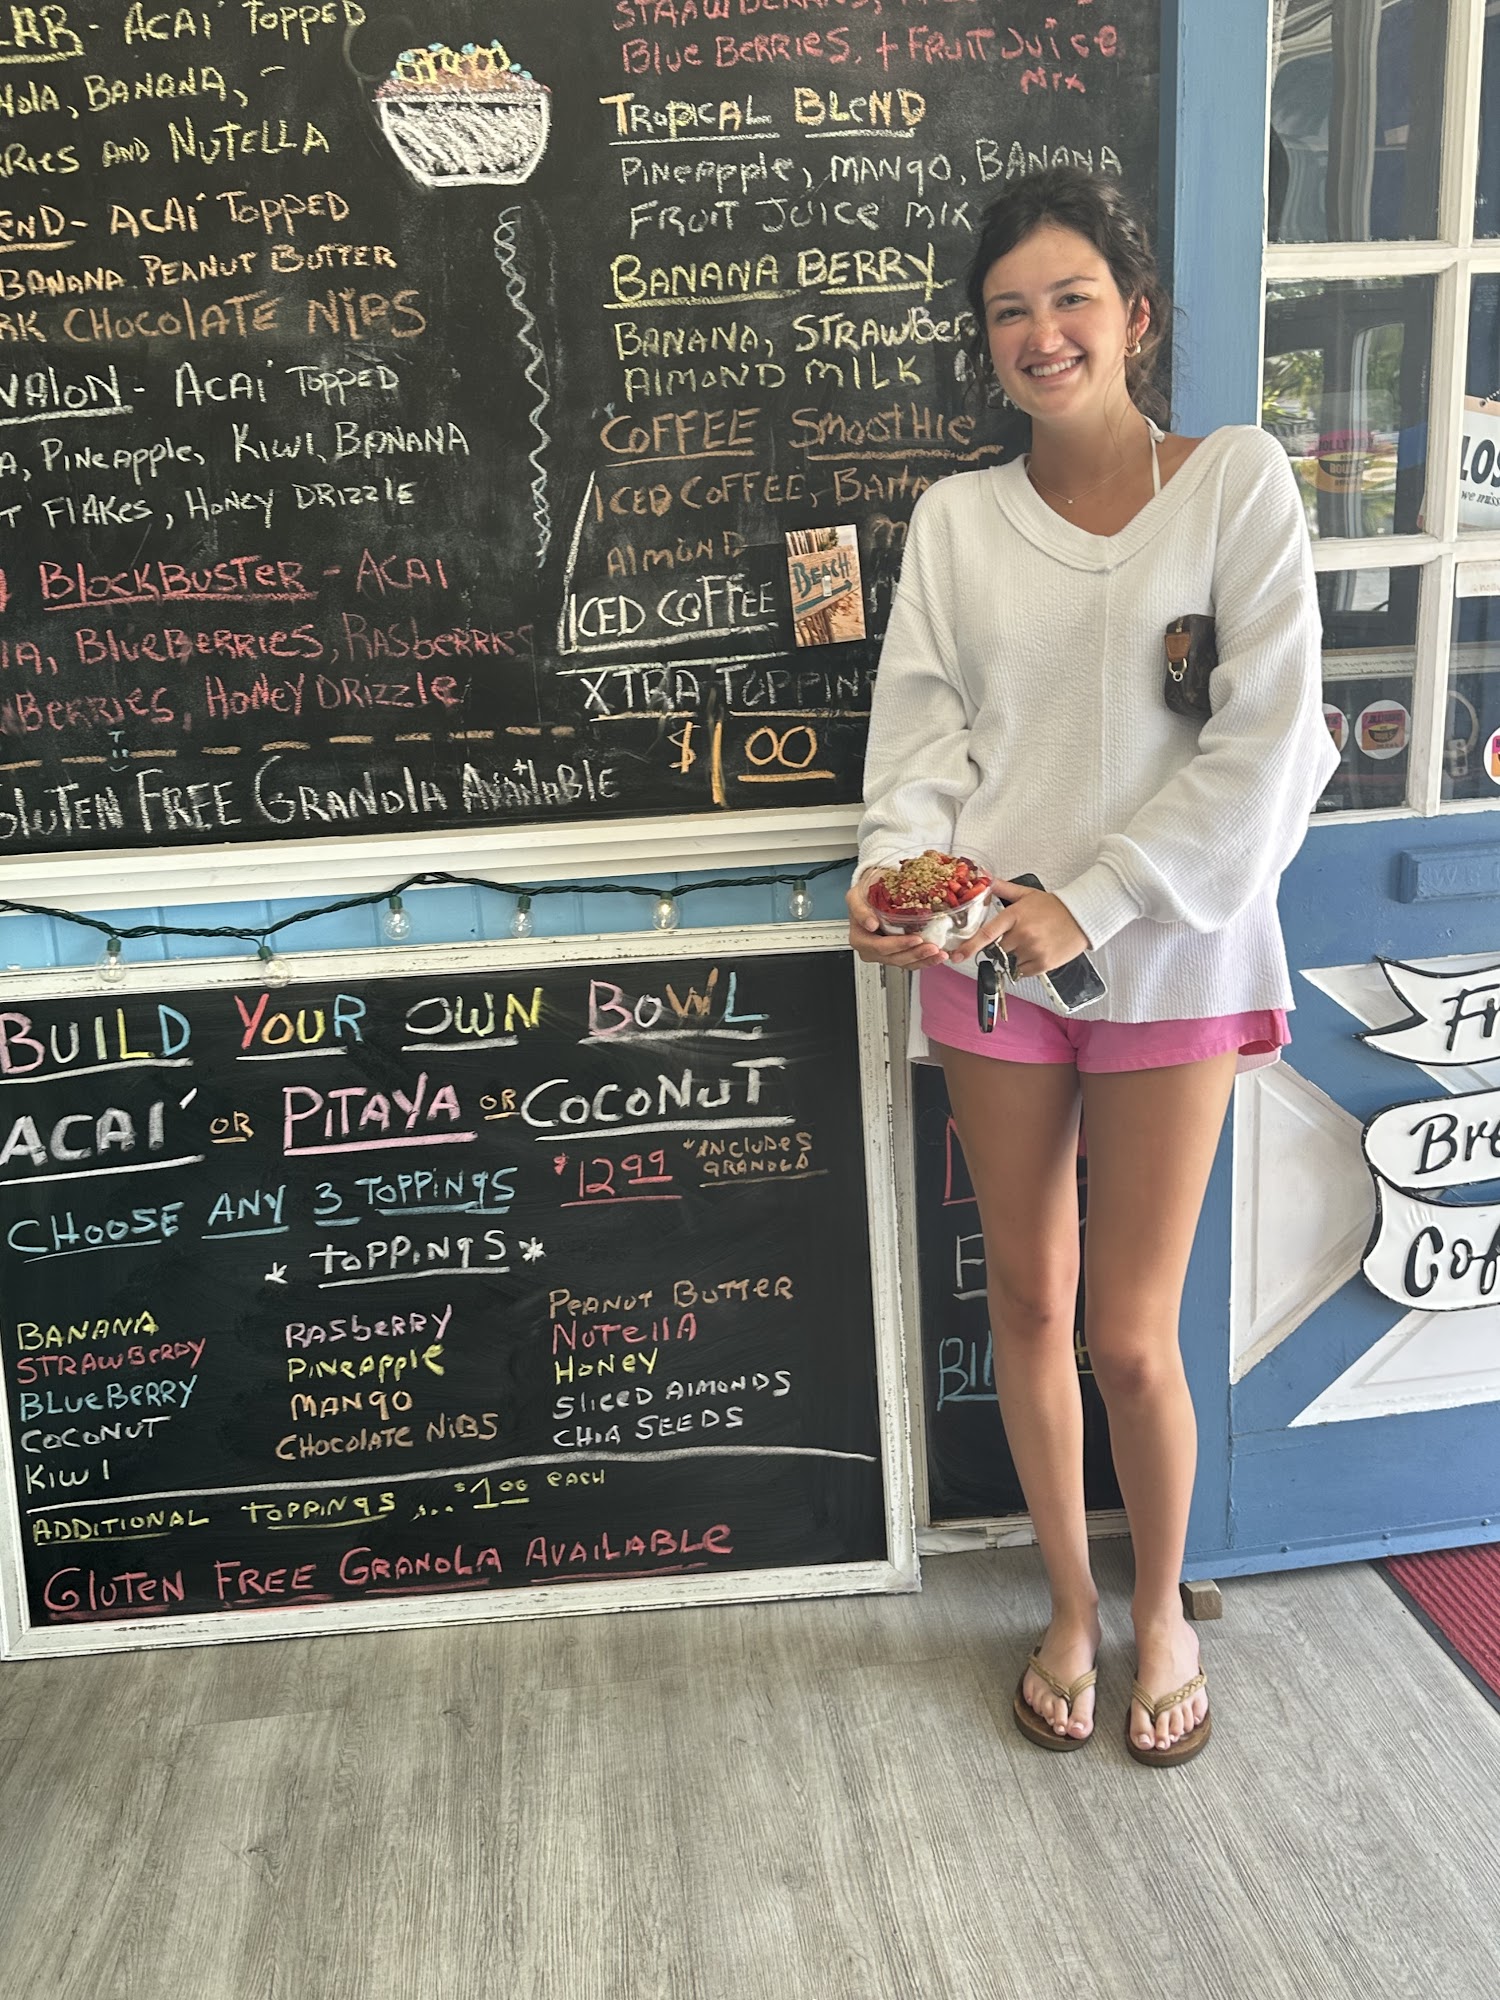 - ACAI TOPPED
BANANA,
AND NUTELLA
- ACAI TOPPED
BANANA PEANUT BUTTER
CHOCOLATE NIPS
- ACAI TOPPED
PINEAPPLE, KIWI, BANANA
FLAKES, HONEY DRIZZLE
BLOCKBUSTER - ACAI
BLUEBERRIES, RASBERRIES
HONEY DRIZZLE
GLUTEN FREE GRANOLA AVAILABLE
BLUE BERRIES, + FRUIT JUICE
MIX
TROPICAL BLEND
PINEAPPPLE, MANGO, BANANA
FRUIT JUICE MIX
BANANA BERRY
BANANA,
ALMOND MILK
COFFEE SMOOTHIE
ICED COFFEE,
ALMOND
ICED COFFEE
BEACH
XTRA
$1.00
BUILD YOUR OWN BOWL
ACAI OR PITAYA OR COCONUT
CHOOSE ANY 3 TOPPINGS $12.99 *INCLUDES
GRANOLA
* TOPPINGS *
BANANA
STRAWBERRY
BLUEBERRY
COCONUT
KIWI
RASBERRY
PINEAPPLE
MANGO
CHOCOLATE NIBS
PEANUT BUTTER
NUTELLA
HONEY
SLICED ALMONDS
CHIA SEEDS
ADDITIONAL TOPPINGS ... $1.00 EACH
GLUTEN FREE GRANOLA AVAILABLE